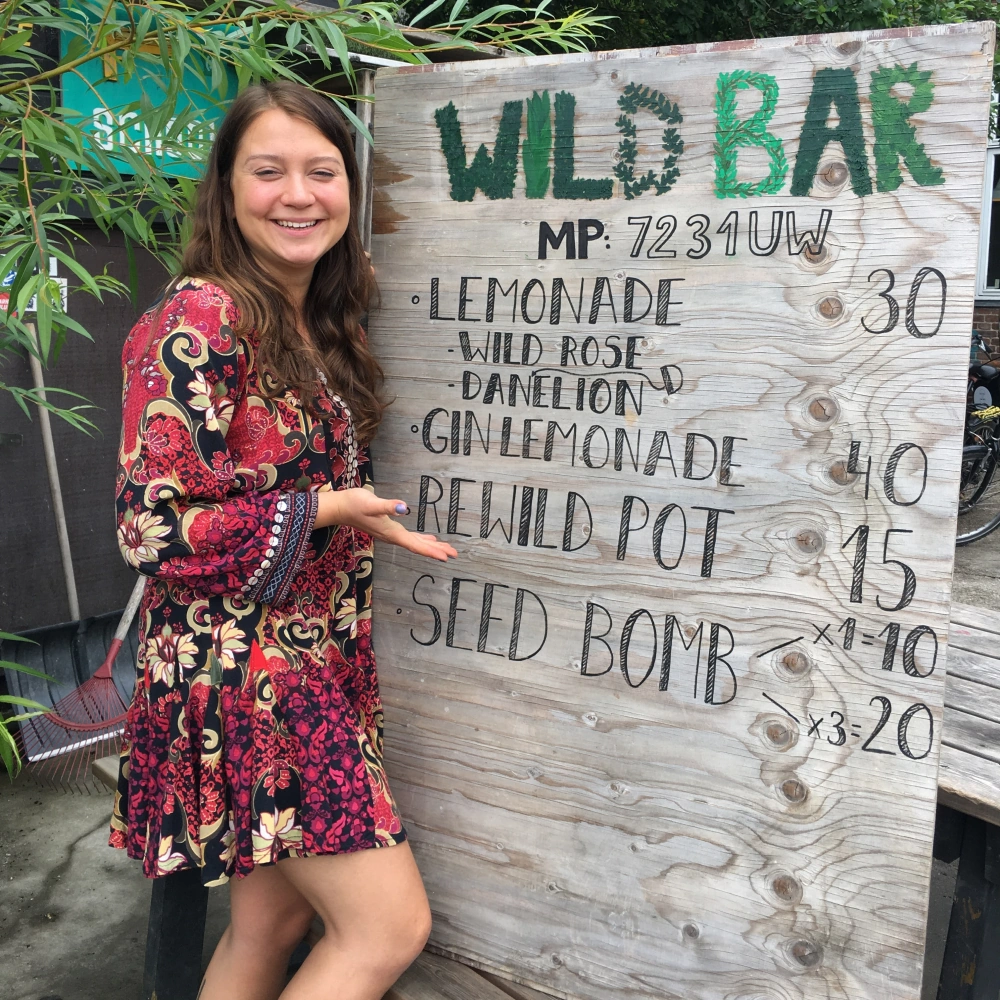 WILD BAR
MP: 7231UW
• LEMONADE 30
- WILD ROSE
- DANELION D
• GIN LEMONADE 40
REWILD POT 15
• SEED BOMB x1=10
x3=20